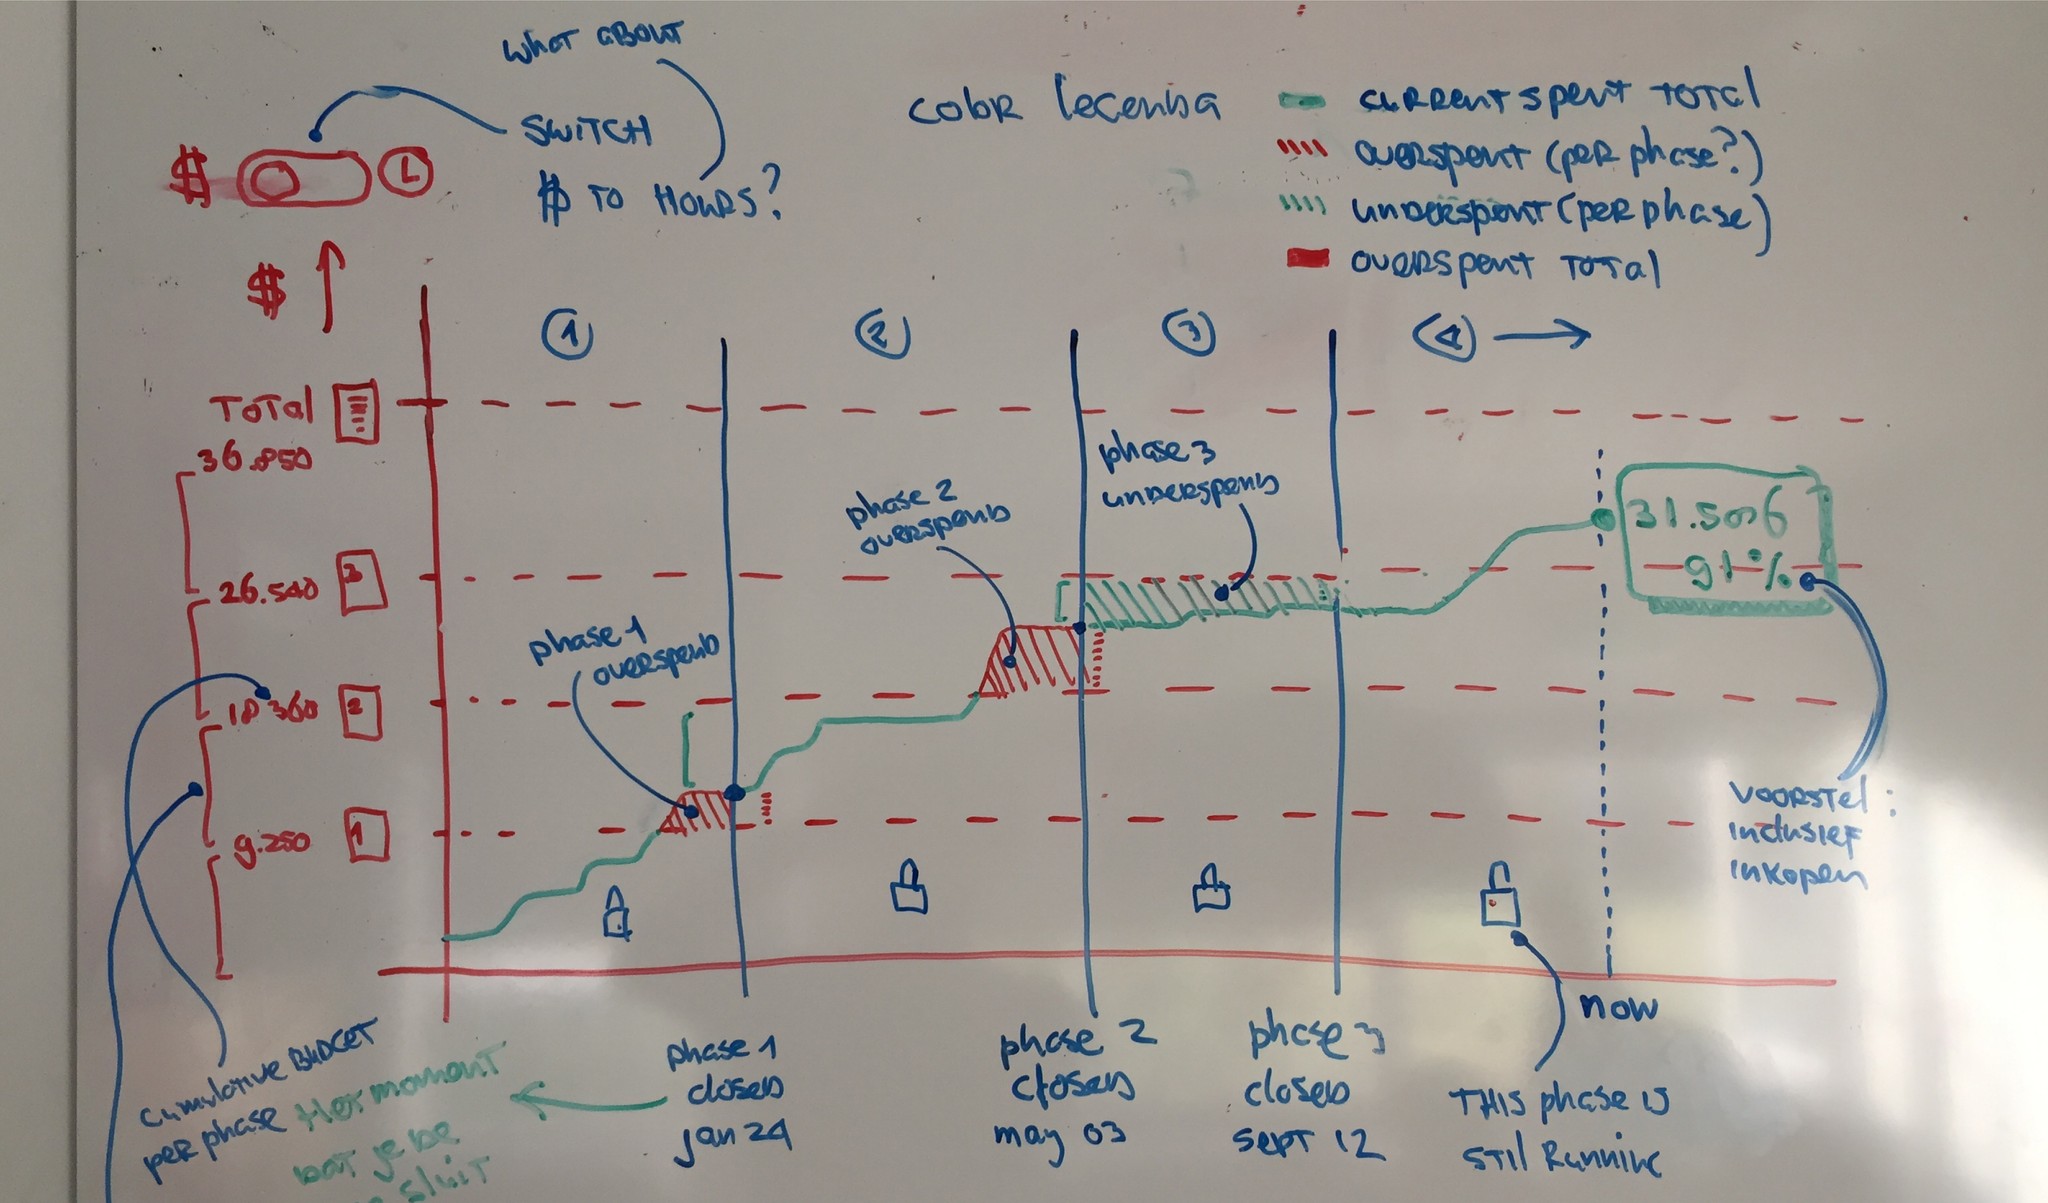 What about
SWITCH
$ TO HOURS?
$
$
color Legenda
current spent total
overspent (per phase?)
underspent (per phase)
overspent total
1
2
3
4
Total
36.850
26.540
3
18.360
2
9.250
1
phase 1
overspend
phase 2
overspend
phase 3
underspend
31.506
91%
voorstel:
inclusief
inkopen
now
cumulative BUDGET
per phase
Het moment
dat je de
sluit
phase 1
closed
jan 24
phase 2
closed
may 03
phase 3
closed
sept 12
THIS phase is
still Running